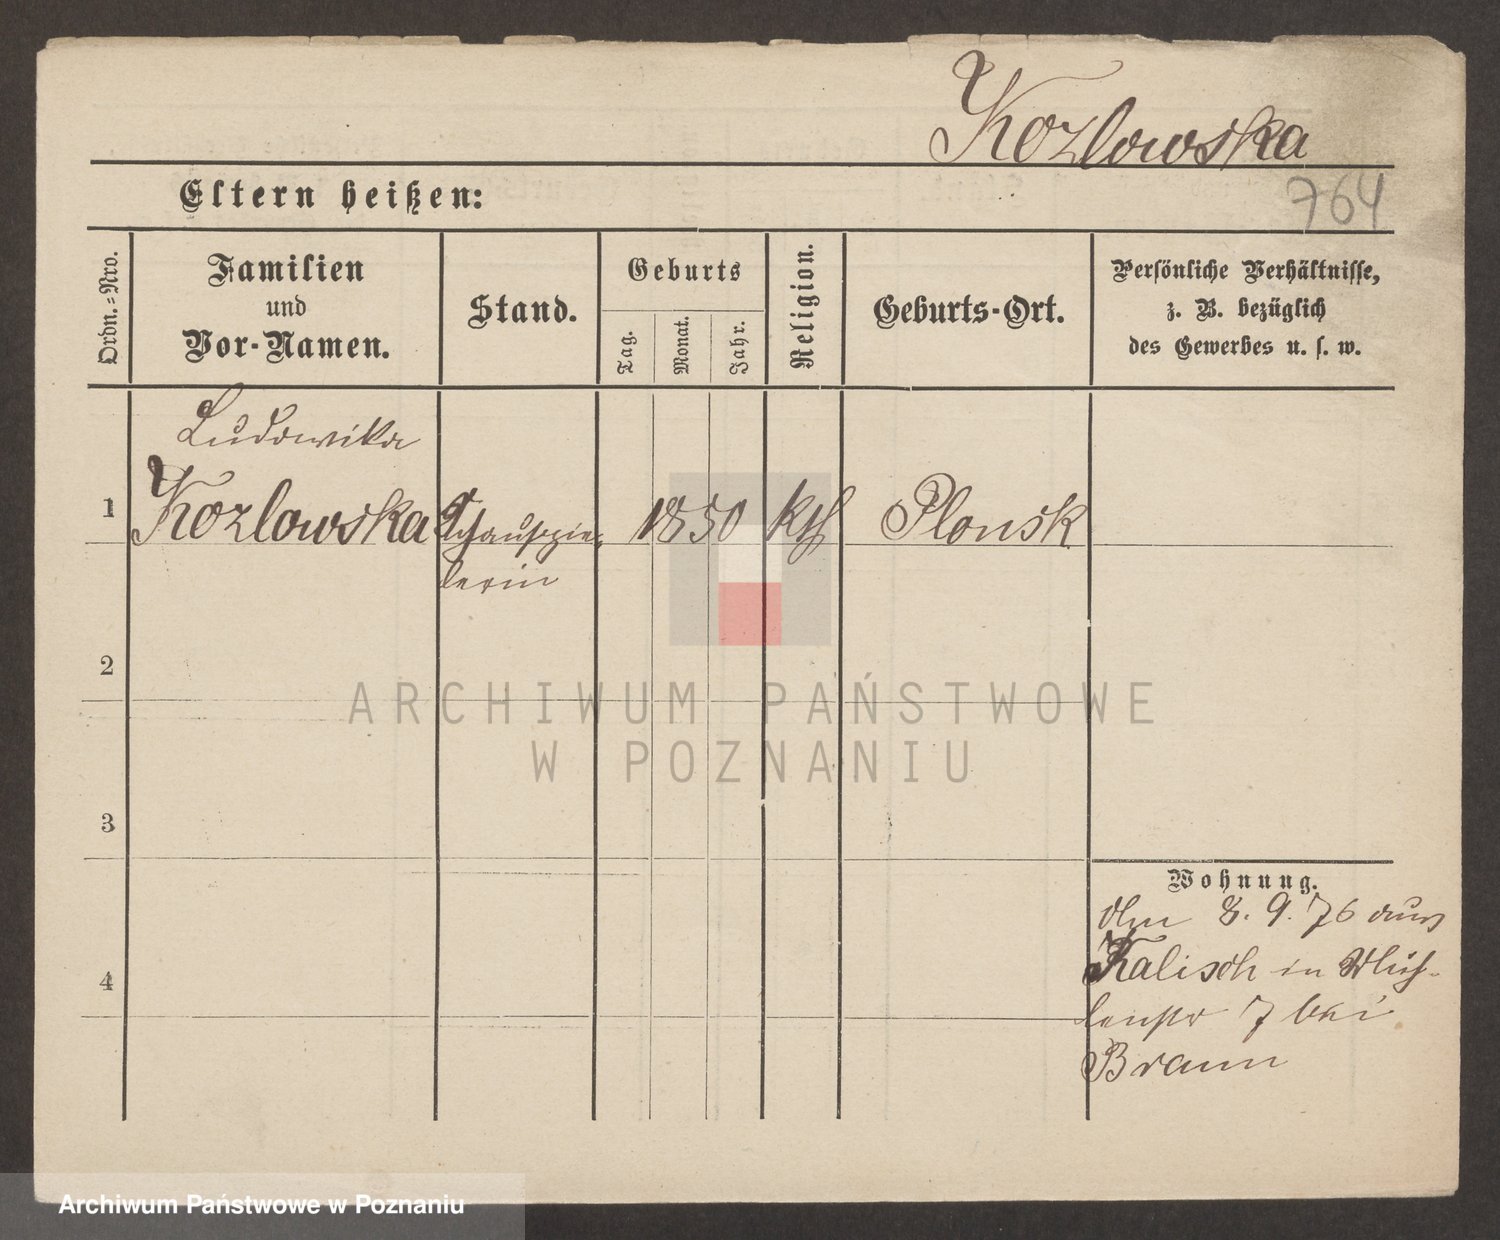 Kozlowska
Eltern heißen:
764
Ordn.-Nro.
Familien
und
Vor-Namen.
Stand.
Geburts
Tag.
Monat.
Jahr.
Religion.
Geburts-Ort.
Persönliche Verhältnisse,
z. B. bezüglich
des Gewerbes u. s. w.
Ludowika
1
Kozlowska
Schauspie-
lerin
1850
kth
Plonsk
2
ARCHIWUM PAŃSTWOWE
W POZNANIU
3
Wohnung.
8. 9. 76 aus
Kalisch in Müh-
lenstr 7 bei
Braun
4
Archiwum Państwowe w Poznaniu